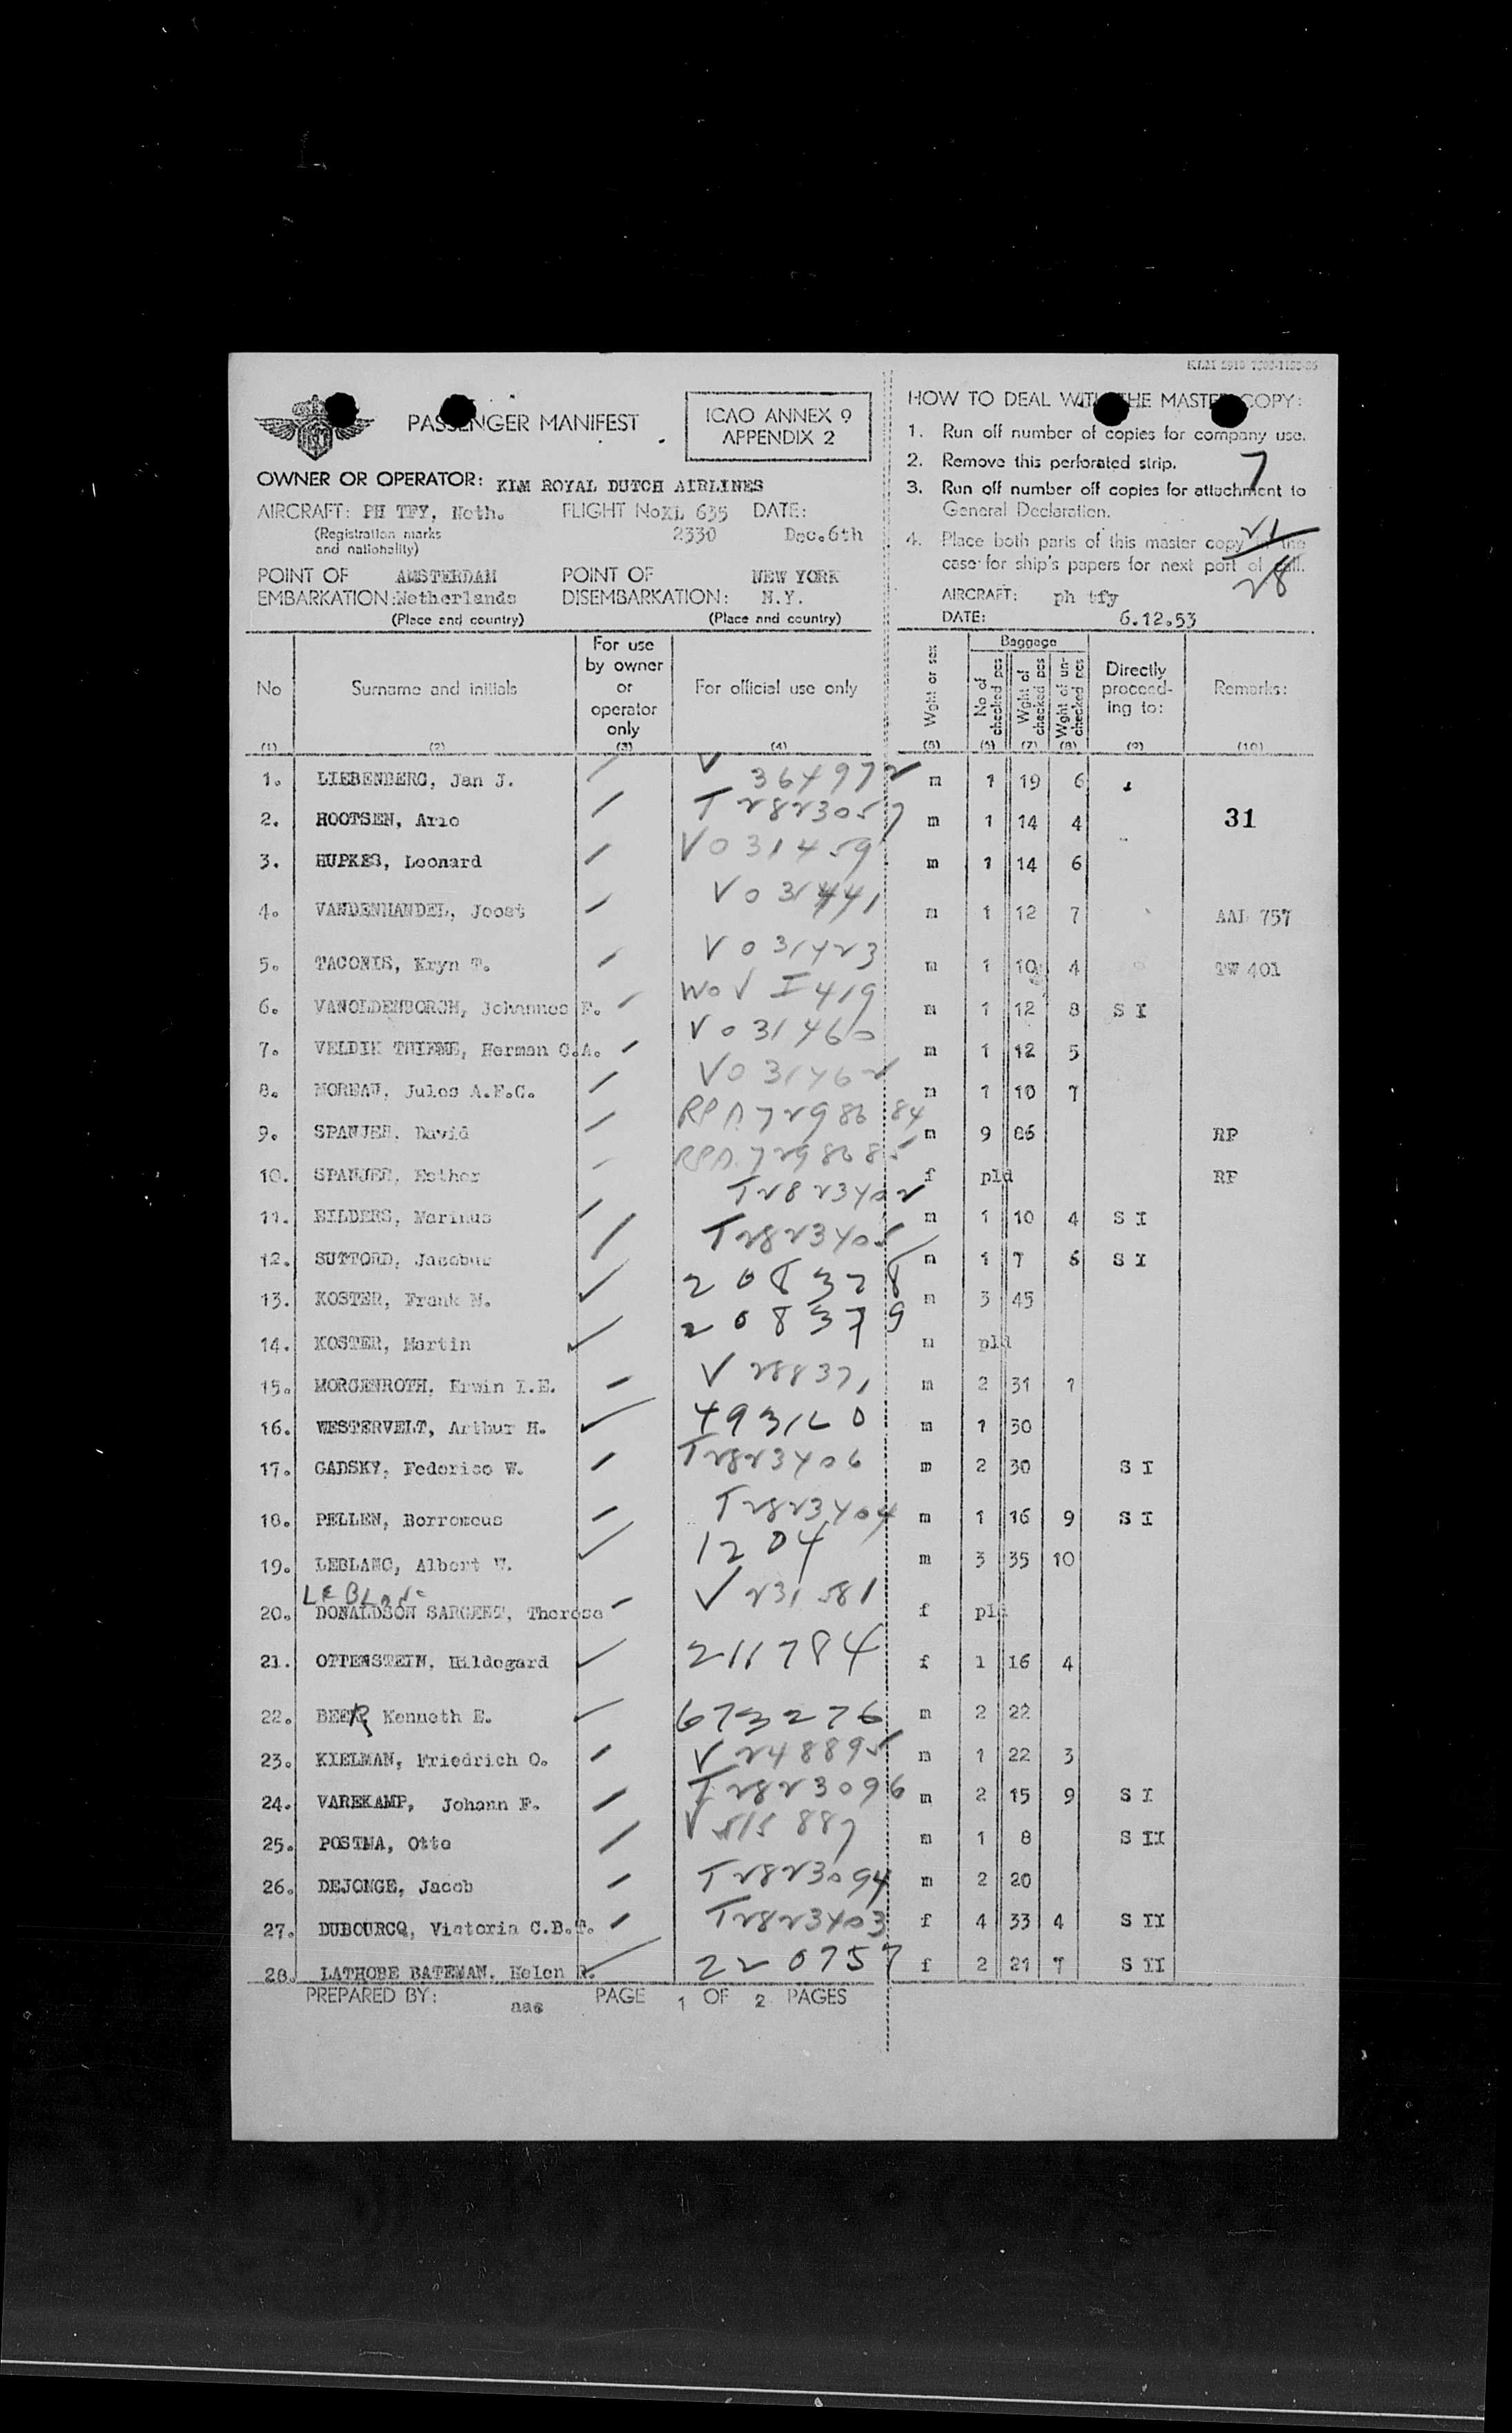 KLM 2910 7500-1155-56
PASSENGER MANIFEST
ICAO ANNEX 9
APPENDIX 2
OWNER OR OPERATOR: KLM ROYAL DUTCH AIRLINES
AIRCRAFT: PH TFY, Neth. FLIGHT No KL 635 DATE:
(Registration marks and nationality) 2330 Dec. 6th
POINT OF EMBARKATION: AMSTERDAM Netherlands
POINT OF DISEMBARKATION: NEW YORK N.Y.
(Place and country) (Place and country)
HOW TO DEAL WITH THE MASTER COPY:
1. Run off number of copies for company use.
2. Remove this perforated strip.
3. Run off number off copies for attachment to
General Declaration.
4. Place both parts of this master copy in the
case for ship's papers for next port of call.
7
21
28
AIRCRAFT: ph tfy
DATE: 6.12.53
No (1) Surname and initials (2) For use by owner or operator only (3) For official use only (4) Wght or sex (5) Baggage No of checked pcs (6) Wght of checked pcs (7) Wght of un-checked pcs (8) Directly proceed-ing to: (9) Remarks: (10)
1. LIEBENBERG, Jan J. V 364972 m 1 19 6
2. HOOTSEN, Arie T2823057 m 1 14 4 31
3. HUPKES, Leonard V031459 m 1 14 6
4. VANDENHANDEL, Joost V031441 m 1 12 7 AAL 757
5. TACONIS, Kryn T. V031423 m 1 10 4 TW 401
6. VANOLDENBORGH, Johannes F. WoV I419 m 1 12 8 S I
7. VELDIK THIEME, Herman C.A. V031460 m 1 12 5
8. MOREAU, Jules A.F.C. V031462 m 1 10 7
9. SPANJER, David RPD 7298684 m 9 86 RP
10. SPANJER, Esther RPD. 7298685 f pld RP
11. EILDERS, Marinus T2823402 m 1 10 4 S I
12. SUTTORD, Jacobus T2823405 m 1 7 6 S I
13. KOSTER, Frank M. 208378 m 3 45
14. KOSTER, Martin 208379 m pld
15. MORGENROTH, Erwin I.E. V 288371 m 2 31 1
16. WESTERVELT, Arthur H. 493120 m 1 30
17. GADSKY, Federico W. T2823406 m 2 30 S I
18. PELLEN, Borromeus T2823404 m 1 16 9 S I
19. LEBLANC, Albert W. 1204 m 3 35 10
LEBLANC
20. DONALDSON SARGENT, Therese V 231581 f pld
21. OTTENSTEIN, Hildegard 211784 f 1 16 4
22. BEER, Kenneth E. 673276 m 2 22
23. KIELMAN, Friedrich O. V 248895 m 1 22 3
24. VAREKAMP, Johann F. T2823096 m 2 15 9 S I
25. POSTMA, Otto V 515887 m 1 8 S II
26. DEJONGE, Jacob T2823094 m 2 20
27. DUBOURCQ, Victoria C.B.T. T2823403 f 4 33 4 S II
28. LATHOBE BATEMAN, Helen R. 220757 f 2 21 7 S II
PREPARED BY: aas PAGE 1 OF 2 PAGES